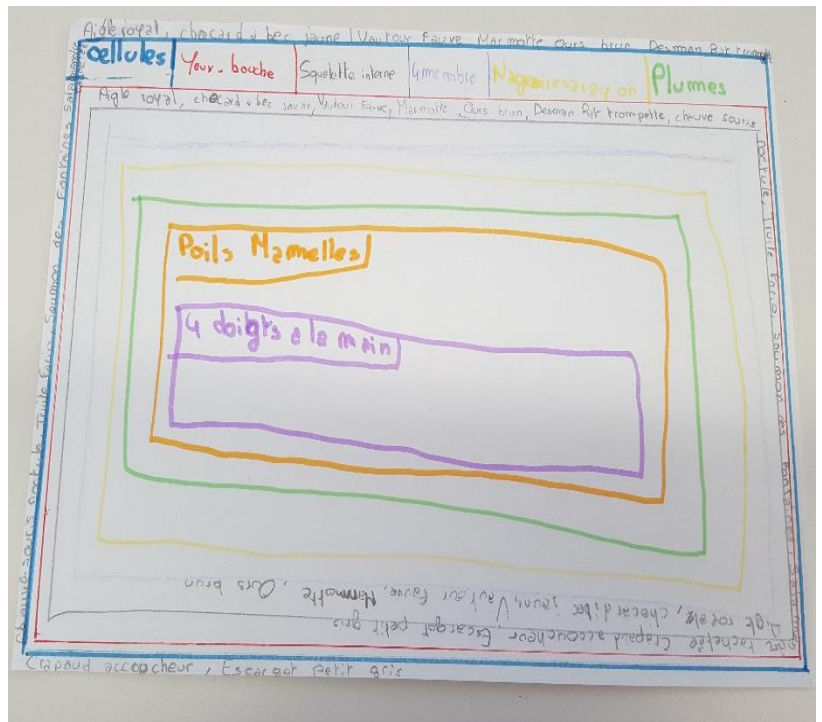 Aigle royal, chocard a bec jaune, Vautour Fauve Marmotte Ours brun Desman Rat trompette
cellules
Yeux - bouche
Squelette interne
4 membre
Nageoires a rayon
Plumes
Aigle royal, chocard a bec jaune, Vautour Fauve, Marmotte, Ours brun, Desman Rat trompette, chauve souris
noctule, Truite Fario, saumon des fontaines, Sala
Poils Mamelles
4 doigts a la main
Aigle royale, chocard bec jaune, Vautour fauve, Marmotte, Ours brun
tachetée Crapaud accoucheur Escargot petit gris
Crapaud accoucheur, Escargot Petit gris
Chauve-souris noctule Truite Fario, Saumon des Fontaines